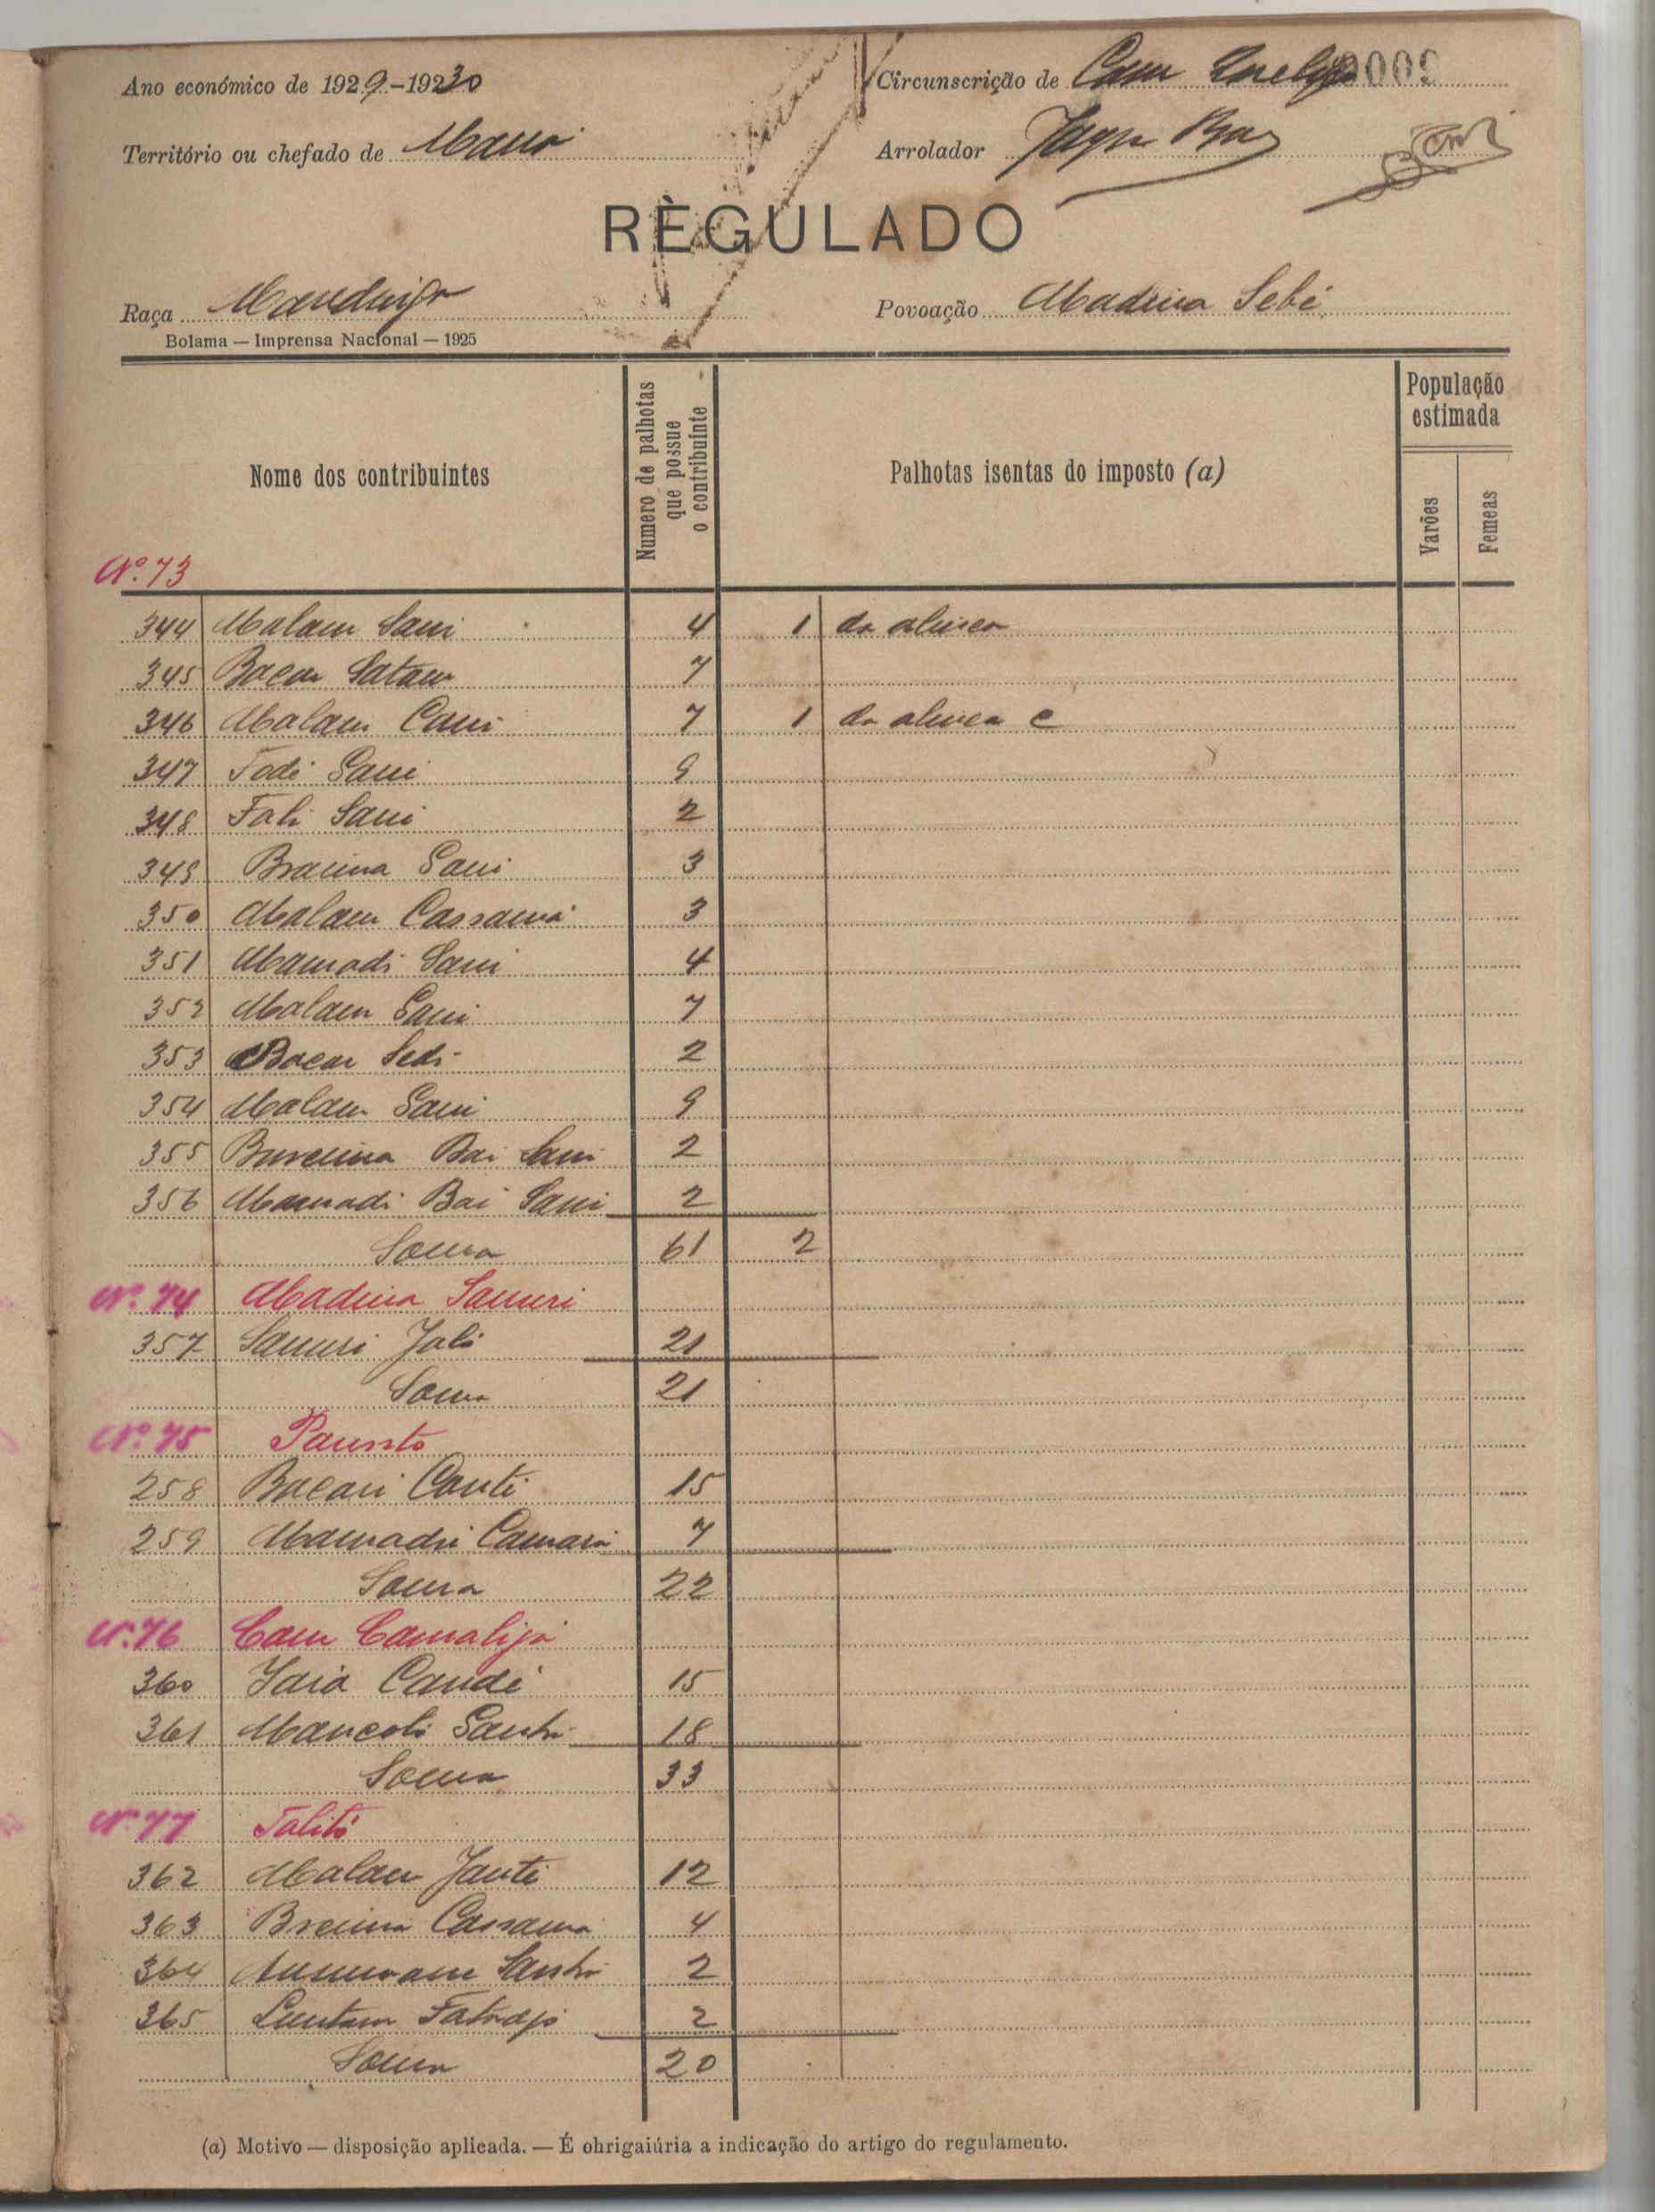 Ano económico de 1929-1930
Circunscrição de
0009
Território ou chefado de
Arrolador
RÈGULADO
Raça Mandinga
Povoação Madina Sebé
Bolama — Imprensa Nacional — 1925
Nome dos contribuintes
Numero de palhotas que possue o contribuinte
Palhotas isentas do imposto (a)
População estimada
Varões
Femeas
Nº. 73
344 Malam Sani 4 1 da alinea
345 Bacar 7
346 Malam Cani 7 1 da alinea c
347 Fodé Sani 9
348 Fali Sani 2
349 Braima Sani 3
350 Malam Cassamá 3
351 Mamadi Sani 4
352 Malam Sani 7
353 Bacar Sedi 2
354 Malam Sani 9
355 Bai Sani 2
356 Mamadi Bai Sani 2
Soma 61 2
Nº. 74 Madina Samuri
357 Samuri Jali 21
Soma 21
Nº. 75
258 Bacari Conté 15
259 Mamadú Camará 7
Soma 22
Nº. 76
360 Iaia Candé 15
361 18
Soma 33
Nº. 77 Talitó
362 Malam 12
363 Cassamá 4
364 2
365 2
Soma 20
(a) Motivo — disposição aplicada. — É ohrigaiúria a indicação do artigo do regulamento.